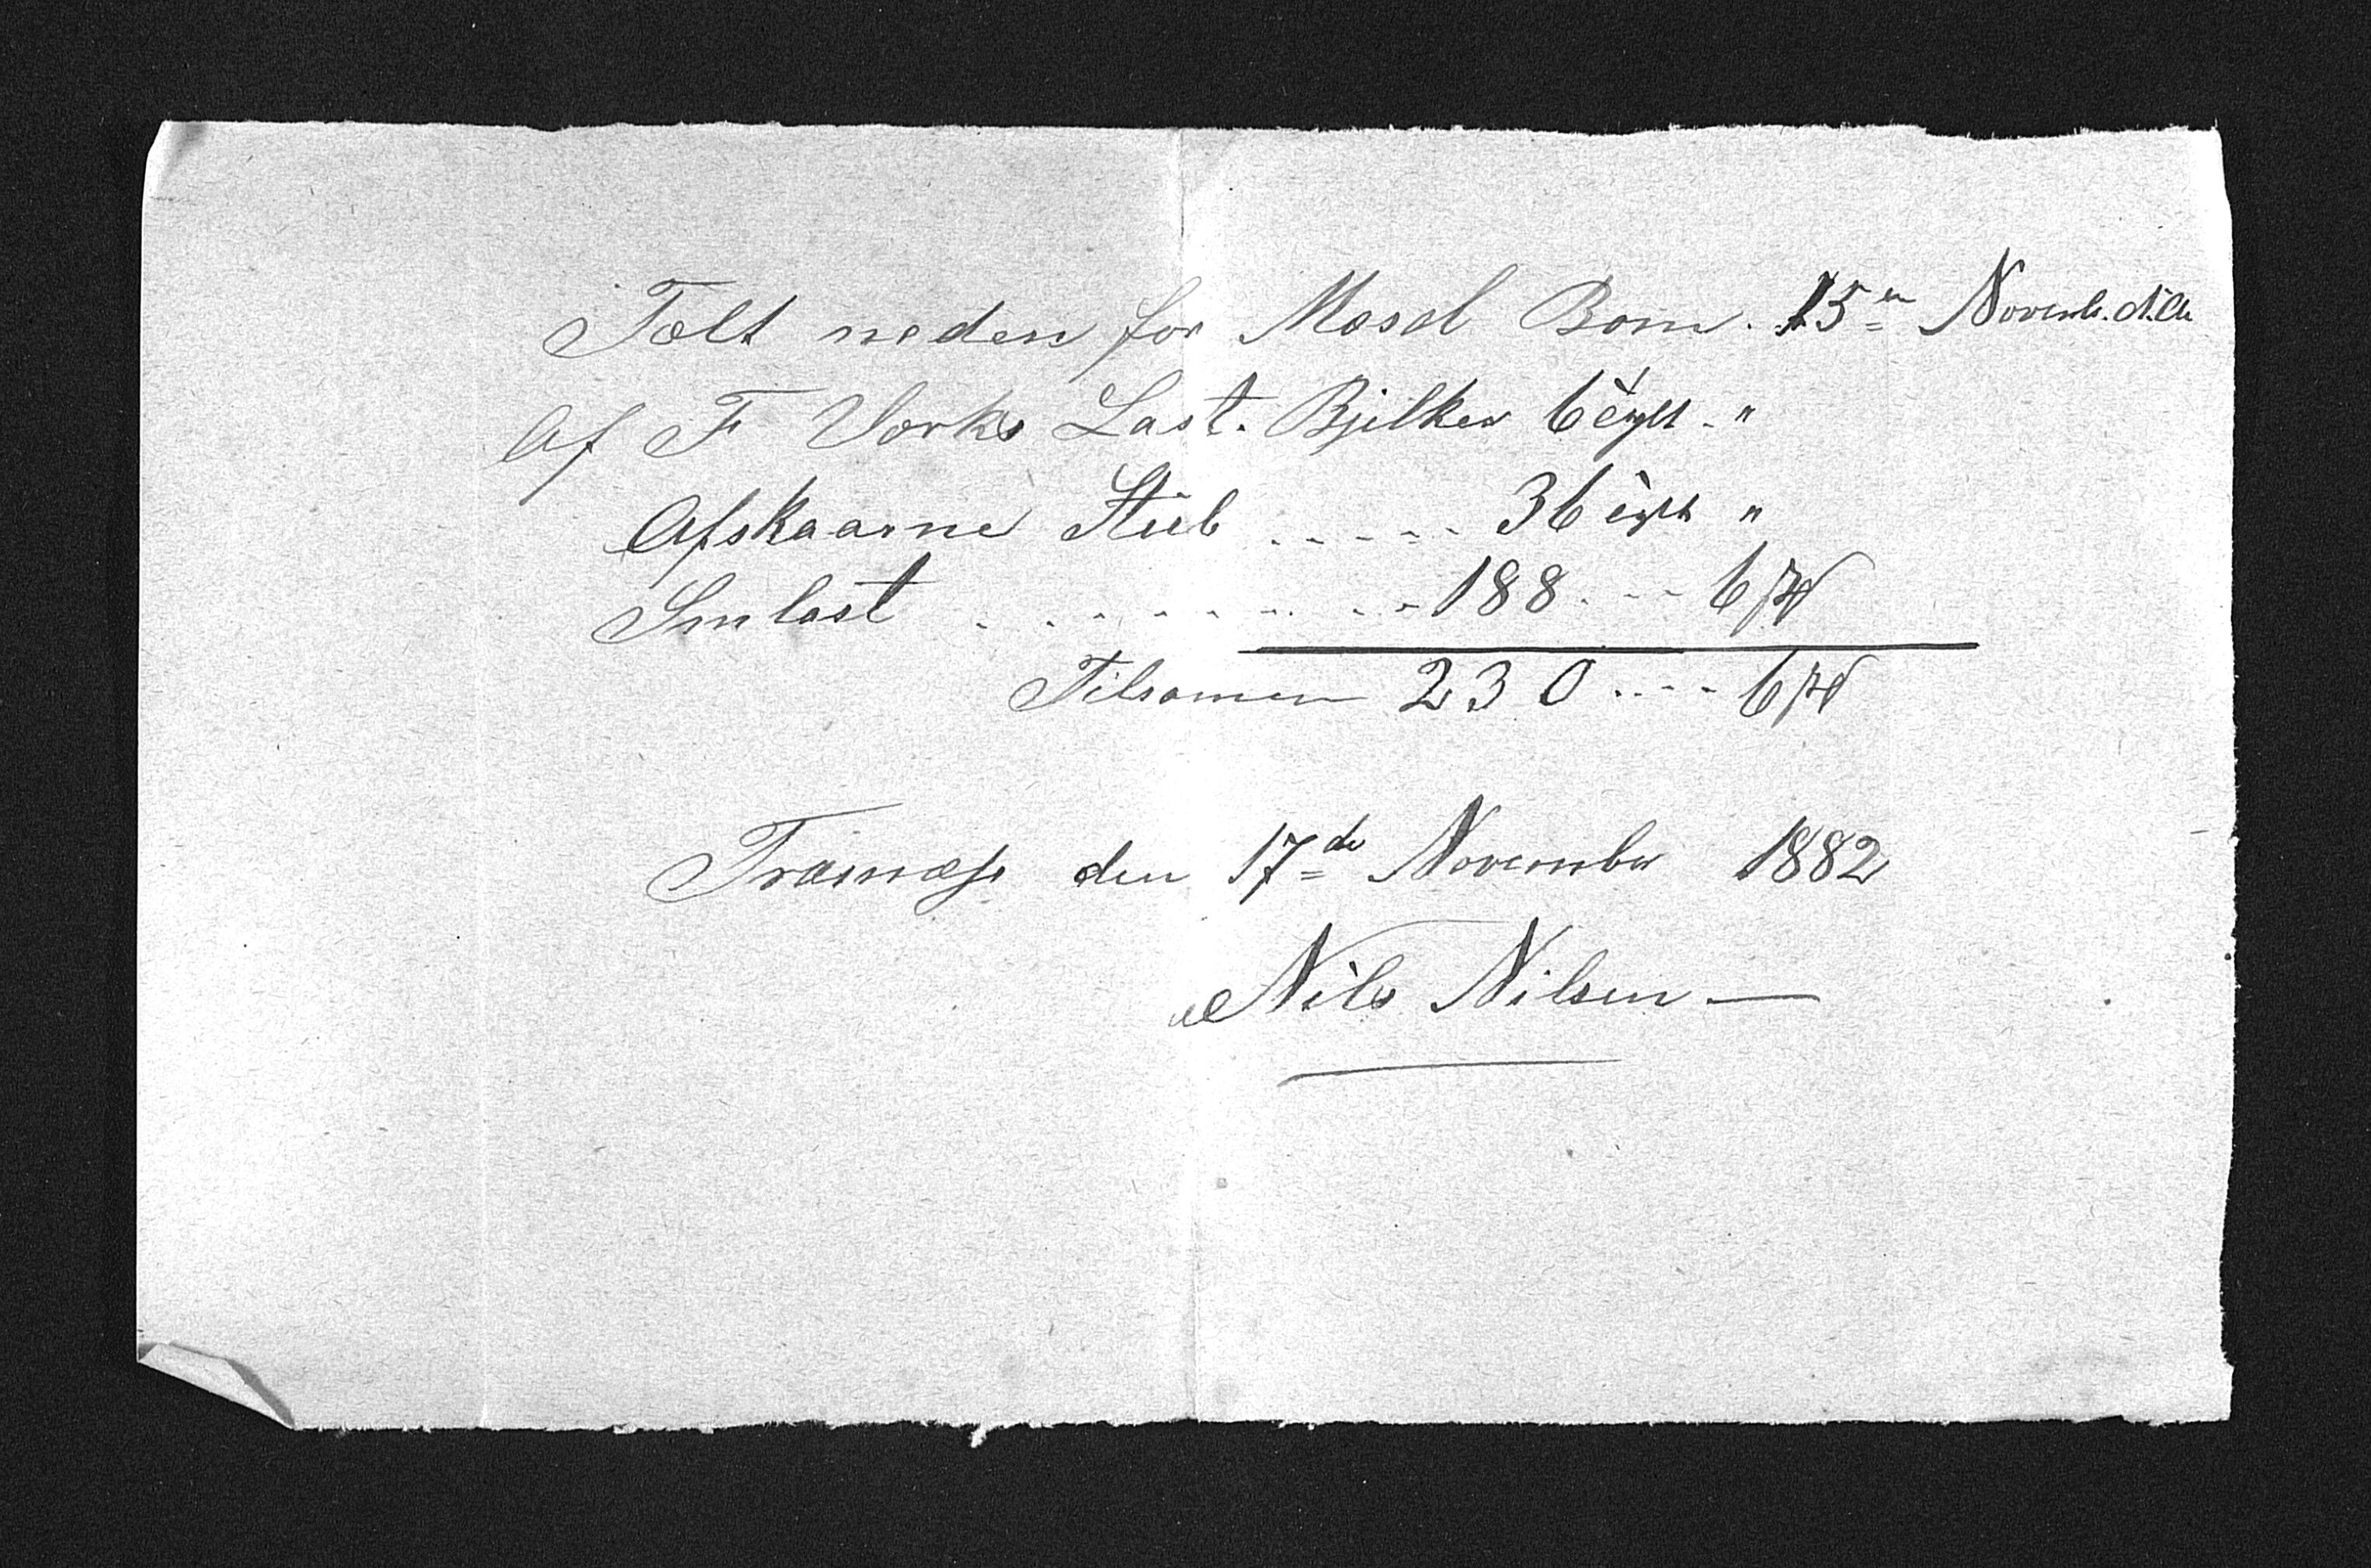 Tælt neden for Mosel Bom. 15en Novemb. d.A.
Af F Vorks Last. Bjelker 6 "
Afskaarne Stub ..... 36 "
Smlast ........ 188 ... 6
Tilsamen 230 .... 6
Trævnæss den 17de November 1882
Nils Nilsen —